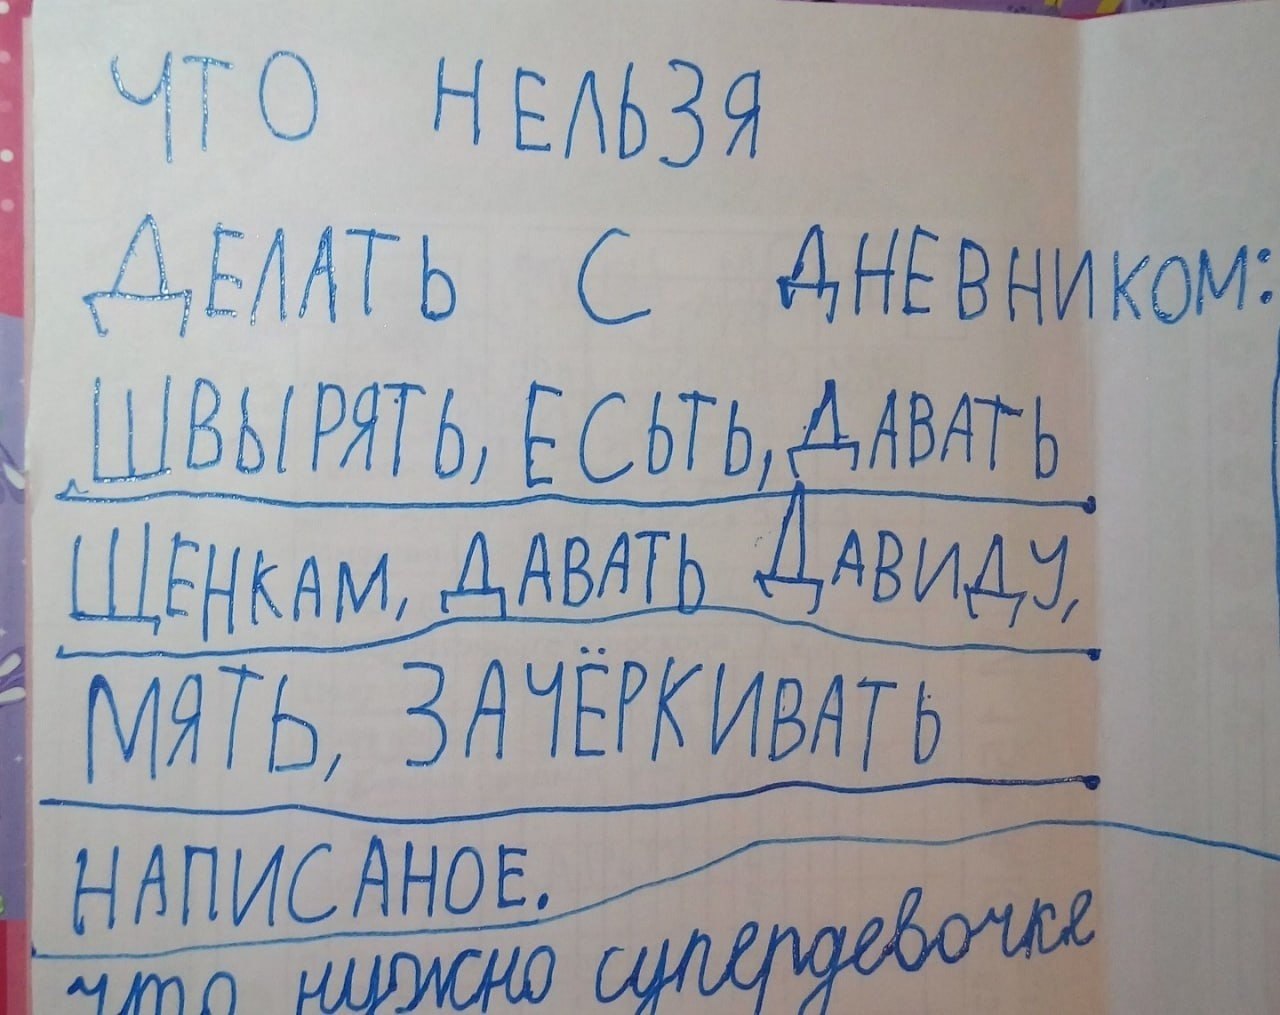 ЧТО НЕЛЬЗЯ
ДЕЛАТЬ С ДНЕВНИКОМ:
ШВЫРЯТЬ, ЕСЬТЬ, ДАВАТЬ
ЩЕНКАМ, ДАВАТЬ ДАВИДУ,
МЯТЬ, ЗАЧЁРКИВАТЬ
НАПИСАНОЕ.
что нужно супердевочке